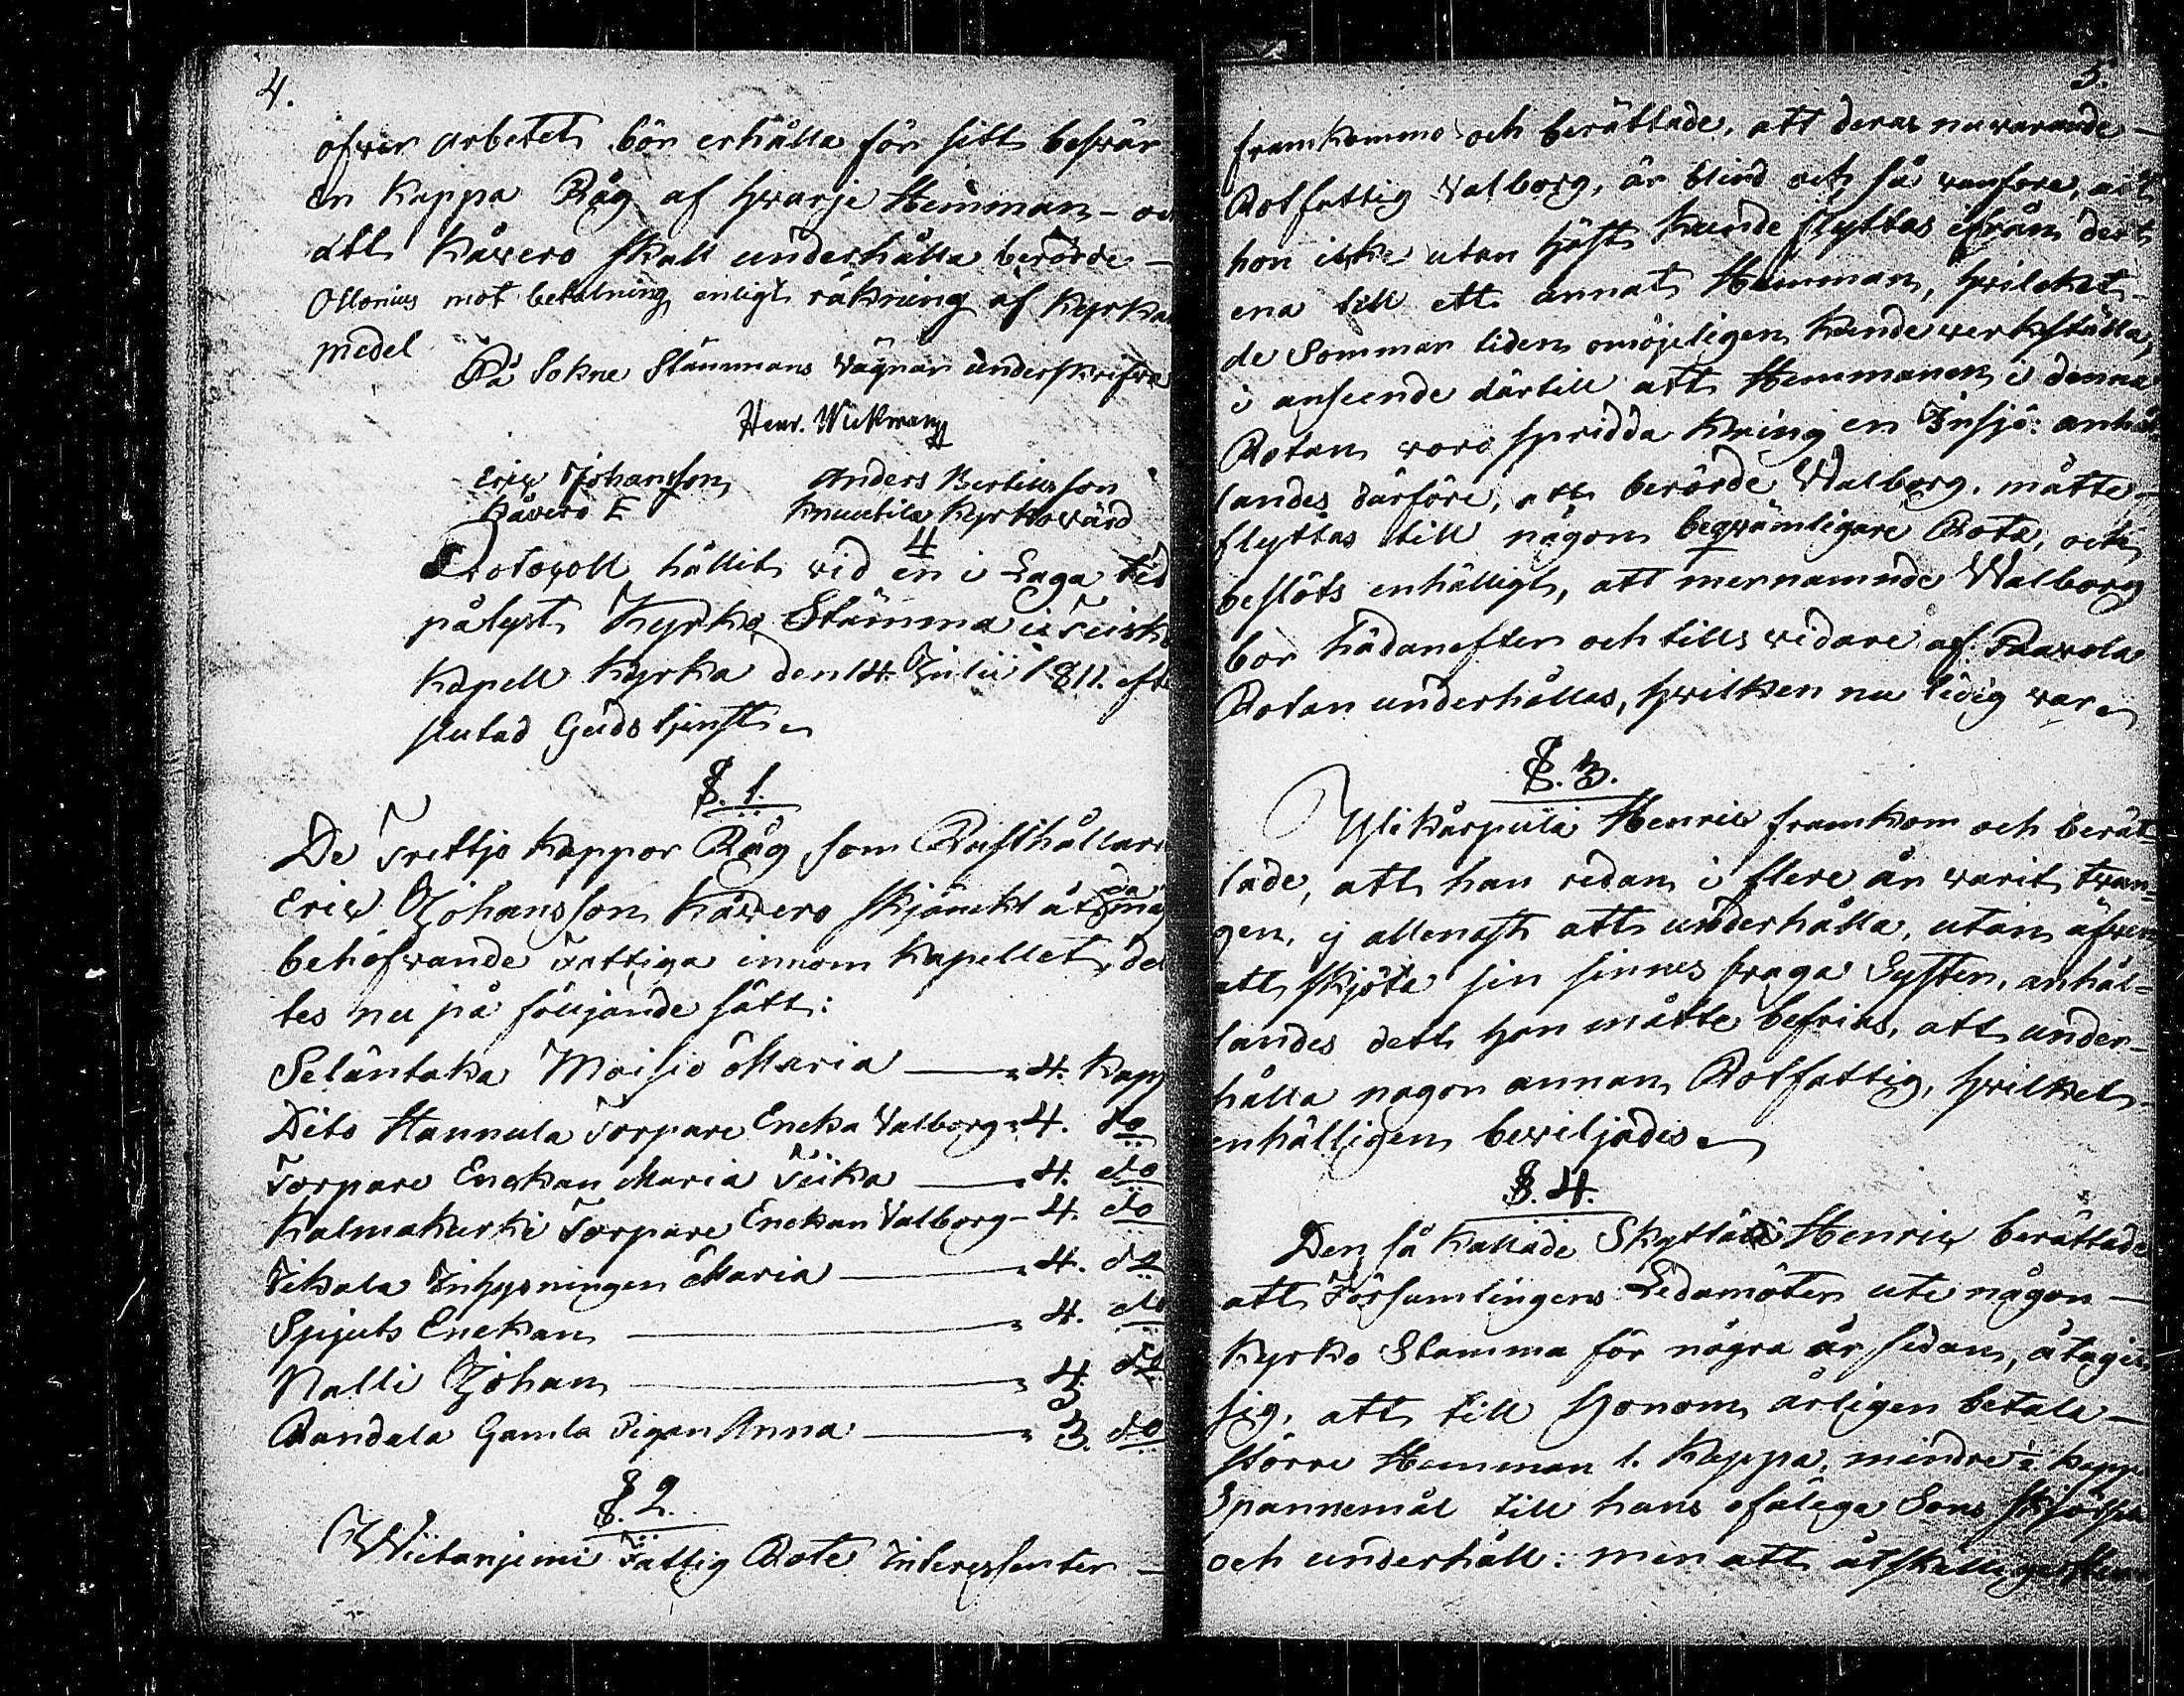 4.
öfver arbetet bör erhålla för sitt besvär
En Kappa Råg af hvarje Hemman - oc
att Kåvero skall underhålla berörde -
Ollonius mot betalning enligt räkning af Kyrkan
medel
På Sokne Stämmans vägnar underskrifva
Henr. Wickman
Eric Johansson Anders Bertillsson
Kåvero E Knuutila Kyrkovärd
4
Protocoll hållit vid en i Laga tid
pålyst Kyrko Stämma i Teisko
Kapell Kyrka den 14. Julii 1811. efte
slutad Gudstjenst
§. 1.
De Trettjo Kappor Råg, som Rusthållare
Eric Johansson Kåvero skjänckt åt
behöfvande Fattiga innom Kapellet, del
tes nu på följande sätt:
Seläntaka Moisio Maria — 4. Kapp
Dito Hannula Torpare Encka Valborg - 4. do
Torpare Enckan Maria Tiika — 4. do
Kalmakurki Torpare Enckan Valborg - 4. do
Tikala Inhysningen Maria — 4. do
Spjuts Enckan — 4. do
Nalli Johan — 3 do
Randala Gamla Pigan Anna — 3. do
§. 2.
Wiitaniemi Fattig Rote Interessenter -
5.
framkommo och berättade, att deras nuvarande -
Rotfattig Valborg, är blind och så vanfore, att
hon icke utan häst kunde flyttas ifrån dett
ena till ett annat Hemman, hvilcket -
de Sommar tiden omöjeligen kunde verkställa,
i anseende därtill att Hemmanen i denna
Rotan voro spridda kring en Insjö: anhål
landes därföre, att berörde Walborg, måtte -
flyttas till någon beqvämligare Rota, och
beslöts enhälligt, att mernämnde Walborg
bör hädanefter och tills vidare af Paavola
Rotan underhållas, hvilken nu ledig var
§. 3.
Ylikårpula Henric framkom och berät=
tade, att han redan i flere år varit tvun=
gen, ej allenast att underhålla, utan äfven
att skjöta sin sinnes svaga Syster, anhål=
landes dett han måtte befrias, att under-
hålla nagon annan Rotfattig, hvilket -
enhälligen beviljades
§. 4.
Den så kallade Skyttälä Henric berättade
att Församlingens Ledamöter ute någon -
Kyrko Stamma för några år sedan, åtagit
sig, att till honom årligen betala -
större Hemman 1. Kappa, mindre ½ Kapp
Spannemål till hans ofäliga Sons skjötsel
och underhåll: men att åtskillige Hem